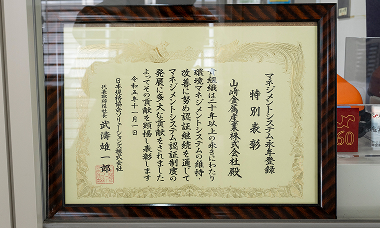 マネジメントシステム永年登録
特別表彰
山崎金属産業株式会社殿
貴組織は二十年以上の永きにわたり
環境マネジメントシステムの維持・
改善に努め認証継続を通して
マネジメントシステム認証制度の
発展に多大な貢献をされました
よってその貢献を顕揚し表彰します
令和五年十一月一日
日本規格協会ソリューションズ株式会社
代表取締役社長 武濤雄一郎